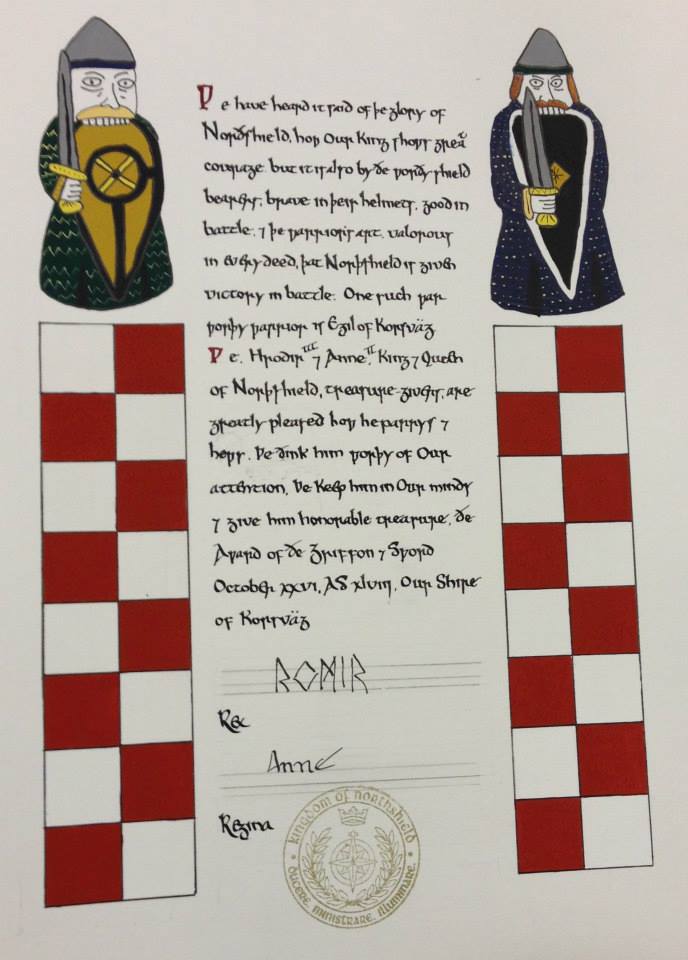 Ƿe have heard it said of þe glory of
Norðshield, hoƿ Our King shoƿs great
courage. but it is also by ðe ƿorðy shield
bearers, brave in þeir helmets, good in
battle, ⁊ þe ƿarrior's art, valorous
in every deed, þat Norþshield is given
victory in battle. One such ƿar
ƿorþy ƿarrior is Egil of Korsväg
Ƿe, Hrodir III ⁊ Anne II, King ⁊ Queen
of Norþshield, treasure-givers, are
greatly pleased hoƿ he parrys ⁊
heƿs. Ƿe ðink him ƿorþy of Our
attention, Ƿe keep him in Our minds
⁊ give him honorable treasure, ðe
Aƿard of ðe Griffon ⁊ Sƿord
October xxvi, AS xlviii, Our Shire
of Korsväg
ROMIR
Rex
Anne
Regina
kingdom of northshield
ducere, ministrare, illuminare.